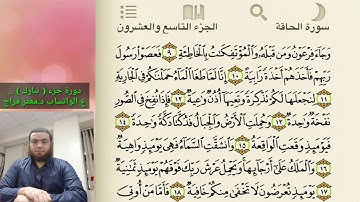 سورة الحاقة
الجزء التاسع والعشرون
وَجَآءَ فِرْعَوْنُ وَمَن قَبْلَهُۥ وَٱلْمُؤْتَفِكَٰتُ بِٱلْخَاطِئَةِ ٩ فَعَصَوْا۟ رَسُولَ
رَبِّهِمْ فَأَخَذَهُمْ أَخْذَةً رَّابِيَةً ١٠ إِنَّا لَمَّا طَغَا ٱلْمَآءُ حَمَلْنَٰكُمْ فِى ٱلْجَارِيَةِ
١١ لِنَجْعَلَهَا لَكُمْ تَذْكِرَةً وَتَعِيَهَآ أُذُنٌ وَٰعِيَةٌ ١٢ فَإِذَا نُفِخَ فِى ٱلصُّورِ
نَفْخَةٌ وَٰحِدَةٌ ١٣ وَحُمِلَتِ ٱلْأَرْضُ وَٱلْجِبَالُ فَدُكَّتَا دَكَّةً وَٰحِدَةً ١٤
فَيَوْمَئِذٍ وَقَعَتِ ٱلْوَاقِعَةُ ١٥ وَٱنشَقَّتِ ٱلسَّمَآءُ فَهِىَ يَوْمَئِذٍ وَاهِيَةٌ
١٦ وَٱلْمَلَكُ عَلَىٰٓ أَرْجَآئِهَا وَيَحْمِلُ عَرْشَ رَبِّكَ فَوْقَهُمْ يَوْمَئِذٍ ثَمَٰنِيَةٌ
١٧ يَوْمَئِذٍ تُعْرَضُونَ لَا تَخْفَىٰ مِنكُمْ خَافِيَةٌ ١٨ فَأَمَّا مَنْ أُوتِىَ
دورة جزء ( تبارك ) ..
ع الواتساب د.معتز فراج